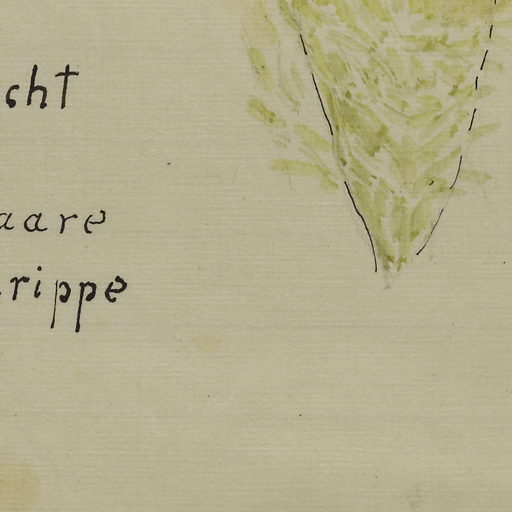 cht
aare
rippe